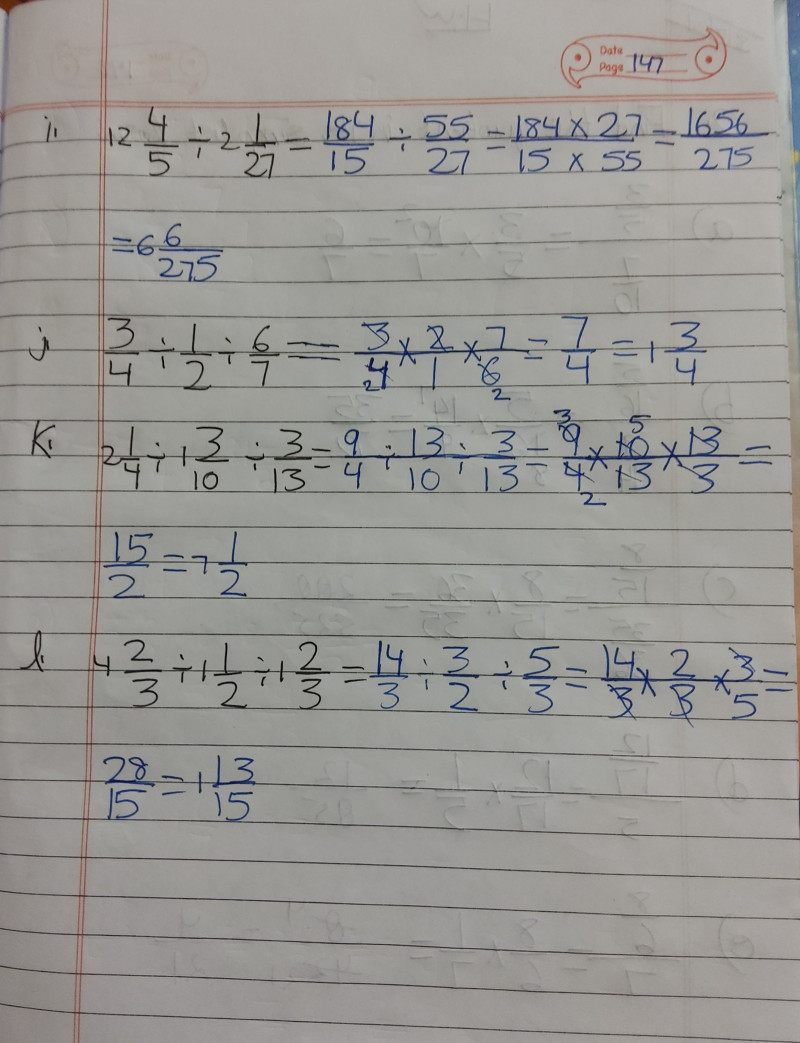 Date
Page 147
i. 12 4/5 ÷ 2 1/27 = 184/15 ÷ 55/27 = 184 × 27 / 15 × 55 = 1656/275
= 6 6/275
j. 3/4 ÷ 1/2 ÷ 6/7 = 3/4 × 2/1 × 7/6 = 7/4 = 1 3/4
2 2
K. 2 1/4 ÷ 1 3/10 ÷ 3/13 = 9/4 ÷ 13/10 ÷ 3/13 = 9/4 × 10/13 × 13/3 =
3 5 2
15/2 = 7 1/2
l. 4 2/3 ÷ 1 1/2 ÷ 1 2/3 = 14/3 ÷ 3/2 ÷ 5/3 = 14/3 × 2/3 × 3/5 =
28/15 = 1 13/15